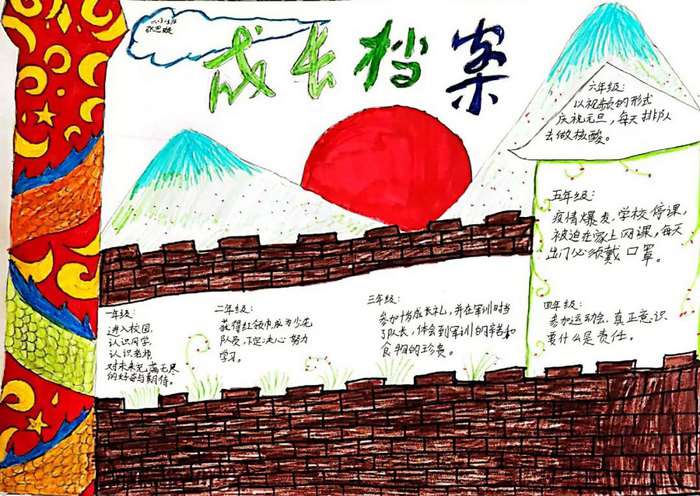 成长档案
六年级:
以视频的形式
庆祝元旦,每天排队
去做核酸。
五年级:
疫情爆发,学校停课,
被迫在家上网课,每天
出门必须戴口罩。
一年级:
进入校园,
认识同学,
认识老师,
对未来充满无尽
的好奇与期待。
二年级:
获得红领巾成为少先
队员,下定决心努力
学习。
三年级:
参加十岁成长礼,并在军训时当
了队长,体会到军训的辛苦和
食物的珍贵。
四年级:
参加运动会,真正意识
到什么是责任。